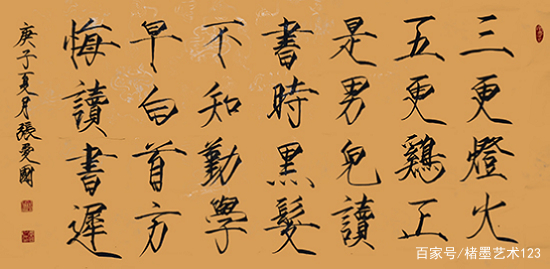 三更燈火
五更鷄正
是男兒讀
書時黑髮
不知勤學
早白首方
悔讀書遲
庚子夏月張愛國
百家号/楮墨艺术123